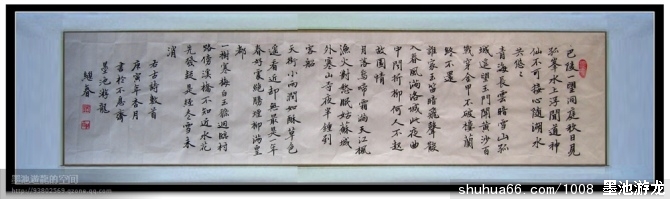 巴陵一望洞庭秋日見
孤峯水上浮聞道神
仙不可接心随湖水
共悠悠
青海長雲暗雪山孤
城遥望玉門關黄沙百
戰穿金甲不破樓蘭
終不還
誰家玉笛暗飛聲散
入春風满洛城此夜曲
中聞折柳何人不起
故園情
月落烏啼霜满天江楓
漁火對愁眠姑蘇城
外寒山寺夜半鍾到
客船
天街小雨潤如酥草色
遥看近却無最是一年
春好處絶勝煙柳满皇
都
一樹寒梅白玉條迥臨村
路傍溪橋不知近水花
先發疑是经冬雪未
消
右古詩數首
庚寅年杏月
書於不息齋
墨池游龍
墨池游龙的空间
http://93802569.qzone.qq.com
shuhua66.com/1008 墨池游龙